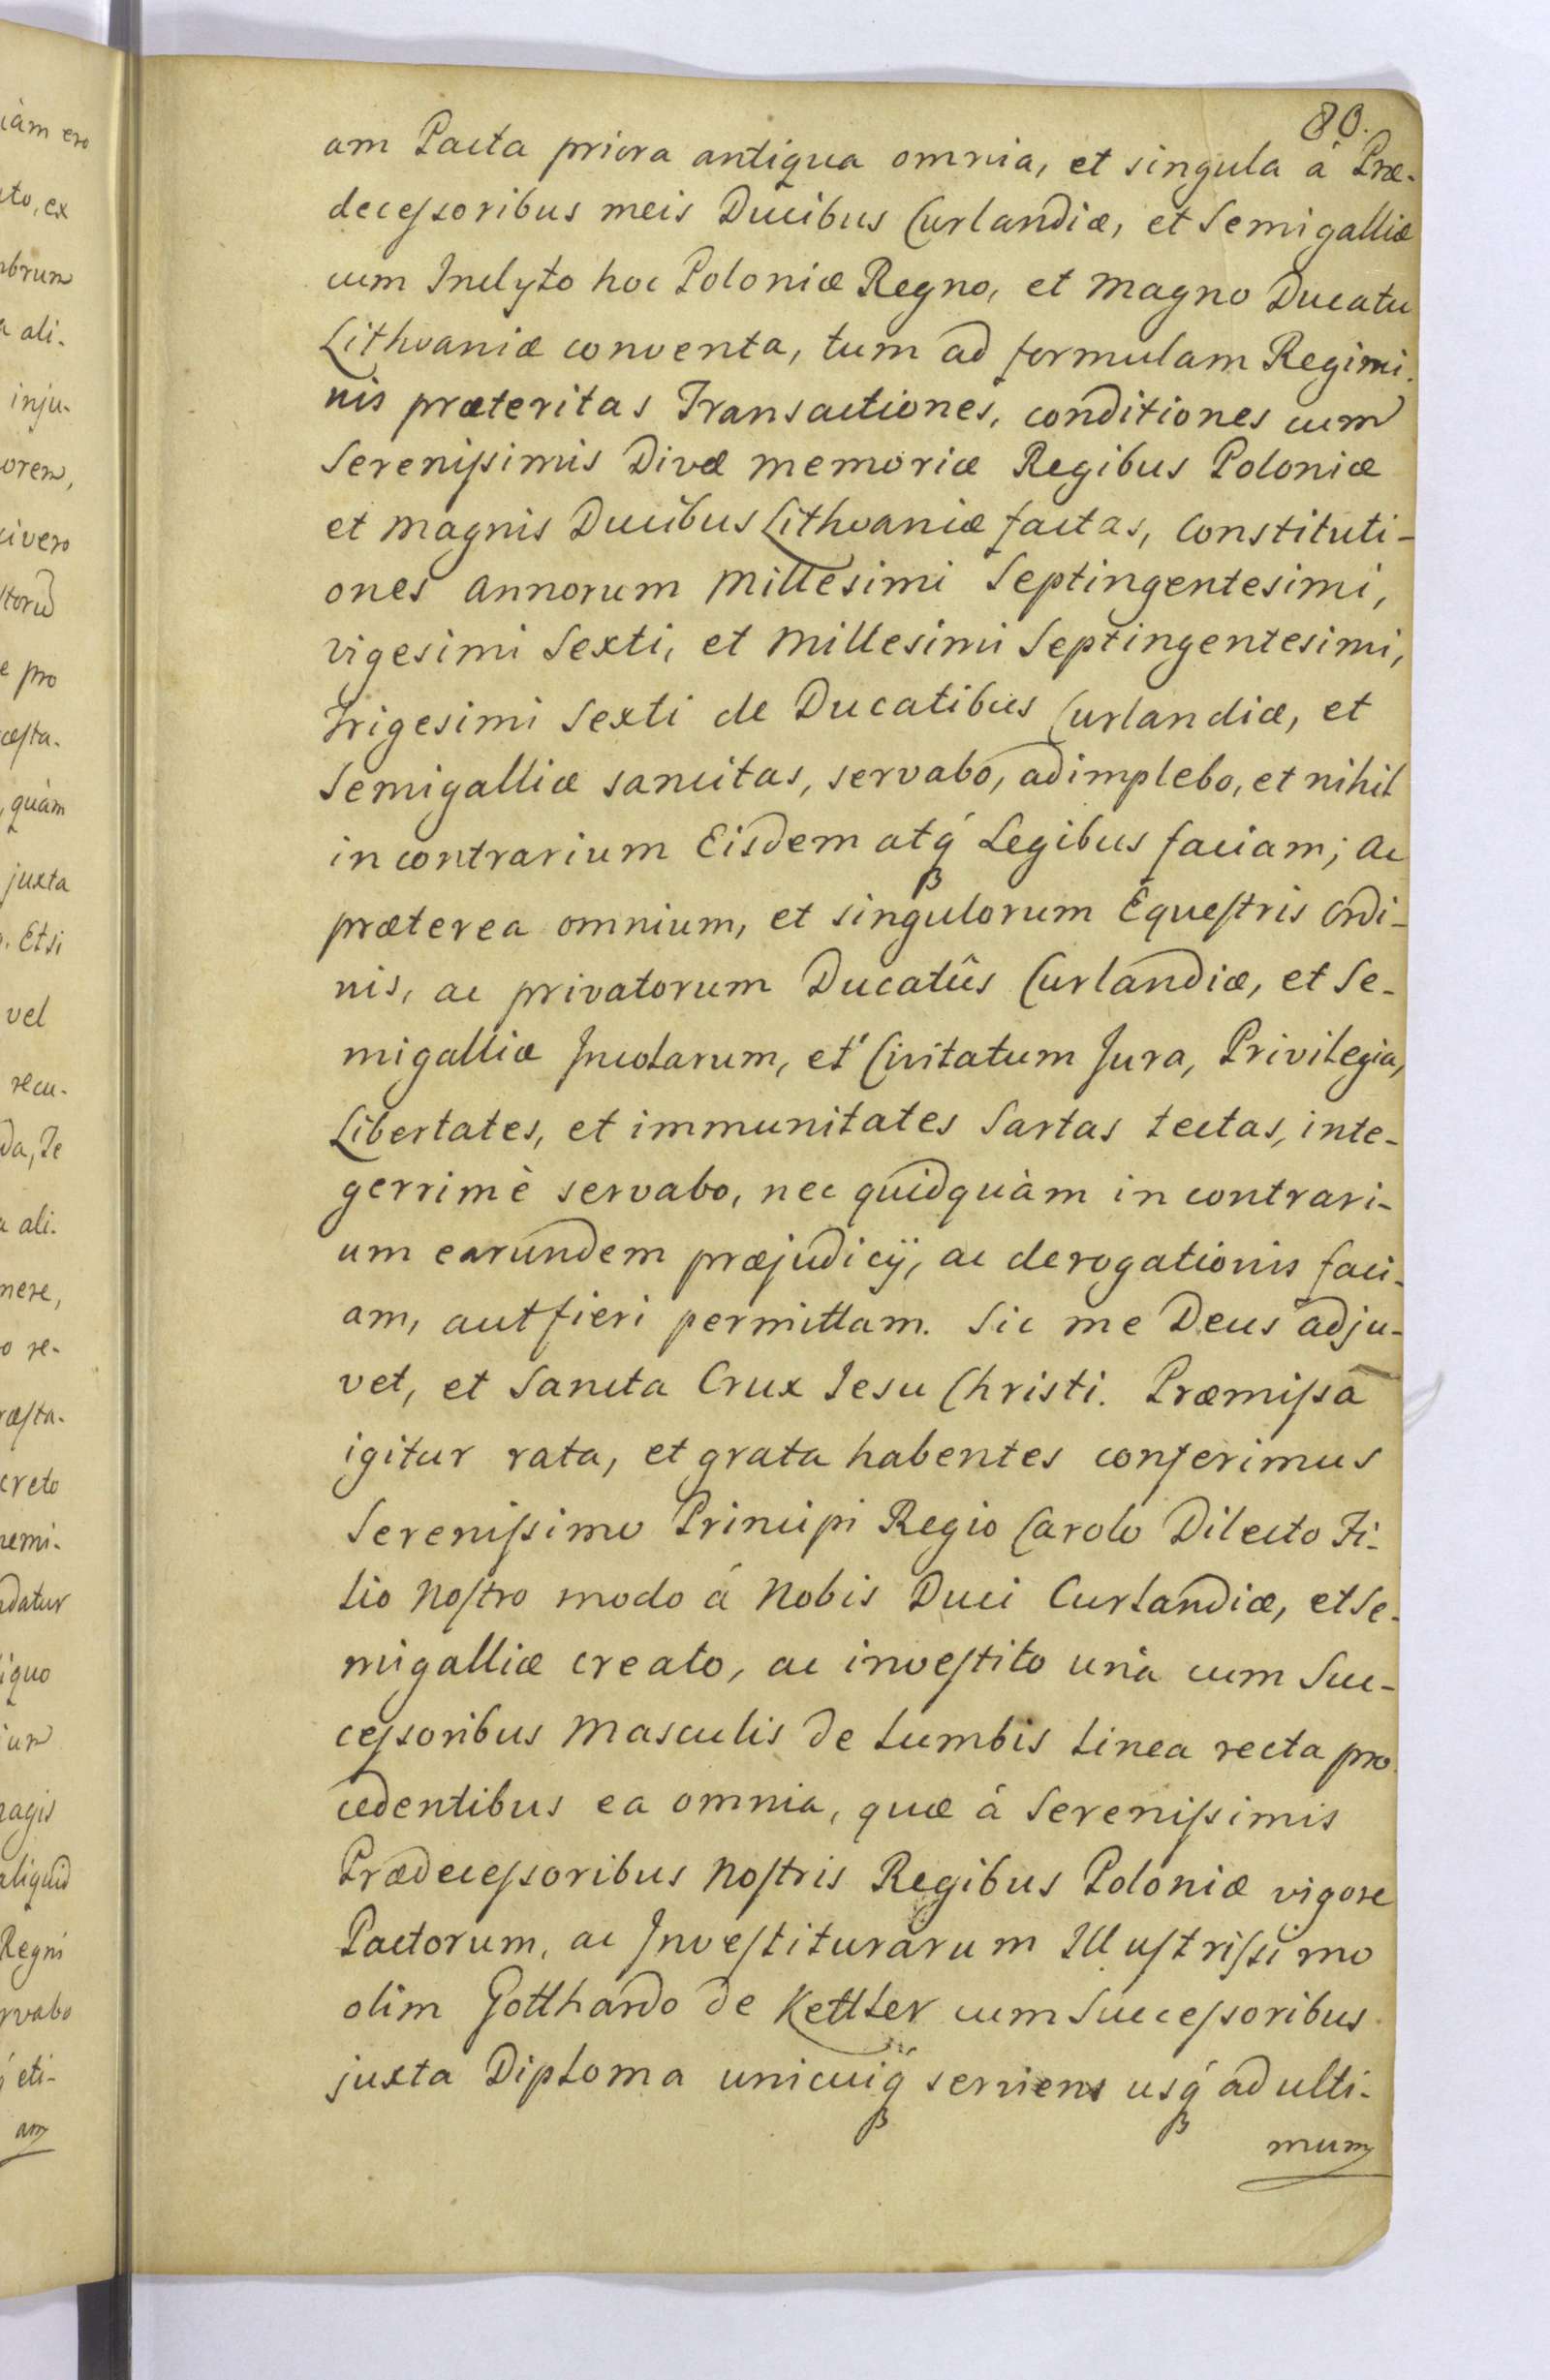 80.
am Pacta priora antiqua omnia, et singula á Præ-
decessoribus meis Ducibus Curlandiæ, et Semigalliæ
cum Inclyto hoc Poloniæ Regno, et Magno Ducatu
Lithvaniæ conventa, tum ad formulam Regimi-
nis præteritas Transactiones, conditiones cum
Serenissimis Divæ memoriæ Regibus Poloniæ
et Magnis Ducibus Lithvaniæ factas, Constituti-
ones Annorum Millesimi Septingentesimi,
vigesimi Sexti, et Millesimi Septingentesimi,
Trigesimi Sexti de Ducatibus Curlandiæ, et
Semigalliæ sancitas, servabo, adimplebo, et nihil
in contrarium Eisdem atq́ Legibus faciam; Ac
præterea omnium, et singulorum Equestris Ordi-
nis, ac privatorum Ducatûs Curlandiæ, et Se-
migalliæ Incolarum, et Civitatum Jura, Privilegia,
Libertates, et immunitates Sartas tectas, inte-
gerrimè servabo, nec quidquàm in contrari-
um earundem præjudicÿ, ac derogationis faci-
am, aut fieri permittam. Sic me Deus adju-
vet, et Sancta Crux Jesu Christi. Præmissa
igitur rata, et grata habentes conferimus
Serenissimo Principi Regio Carolo Dilecto Fi-
lio Nostro modo á Nobis Duci Curlandiæ, et Se-
migalliæ creato, ac investito unà cum Suc-
cessoribus Masculis de Lumbis Linea recta pro-
cedentibus ea omnia, quæ á Serenissimis
Prædecessoribus Nostris Regibus Poloniæ vigore
Pactorum, ac Investiturarum Illustrissimo
olim Gotthardo de Kettler cum Successoribus
juxta Diploma unicuiq́ serviens usq́ ad ulti-
mum
iàm ero
ato, ex
mbrum
a ali-
inju-
orem,
civero
e pro
æsta-
quàm
juxta
Etsi
vel
recu-
da, Te
a ali-
nere,
o re-
ræsta-
creto
nemi-
datur
iquo
ium
nagis
aliquid
Regni
rvabo
q́ eti-
am